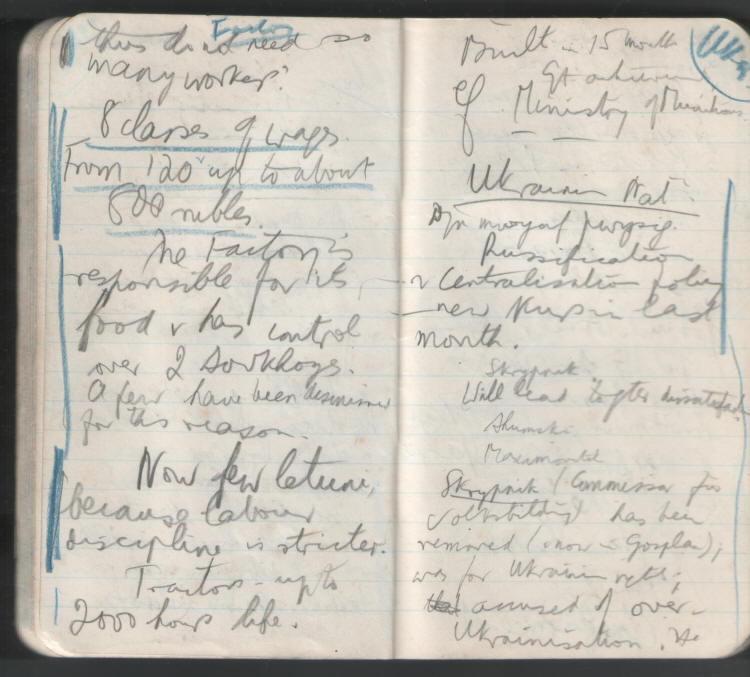 Factory
thus do not need so
many workers.
8 classes of wages
From 120 up to about
800 rubles.
The Factory is
responsible for its
food & has control
over 2 Sovkhozy.
A few have been dismissed
for this reason.
Now few leave,
because labour
discipline is stricter.
Tractors - up to
2000 hours life.
Built in 15 months
Gt achievement
of Ministry of Munitions
Ukrainian Nat.
Russification
& Centralisation policy
- new
last
month.
Skrypnik
Will lead to gter dissatisfac
Shumski
Maximovitch
Skrypnik (Commissar for
has been
removed (& now in Gosplan);
was for Ukrainian
accused of over-
Ukrainisation. He